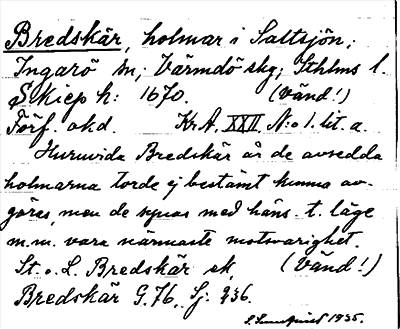 Bredskär, holmar i Saltsjön;
Ingarö sn; Värmdö skg; Sthlms l.
Skiep h: 1670. (Vänd!)
Förf. okd. Kr.A. XXII N:o 1. lit. a.
Huruvida Bredskär är de avsedda
holmarna torde ej bestämt kunna av-
göras, men de synas med häns. t. läge
m.m. vara närmaste motsvarighet.
St. o. L. Bredskär ek, (Vänd!)
Bredskär G.76, Sj: 236.
1935.